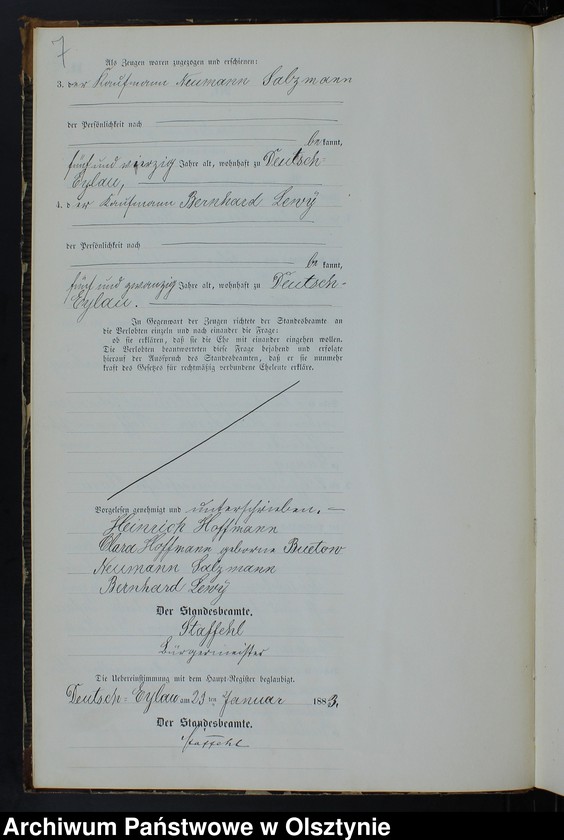 7
Als Zeugen waren zugezogen und erschienen:
3. der Kaufmann Neumann Salzmann
der Persönlichkeit nach
be kannt,
fünf und vierzig Jahre alt, wohnhaft zu Deutsch-
Eylau,
4. der Kaufmann Bernhard Lewÿ
der Persönlichkeit nach
be kannt,
fünf und zwanzig Jahre alt, wohnhaft zu Deutsch-
Eylau.
In Gegenwart der Zeugen richtete der Standesbeamte an
die Verlobten einzeln und nach einander die Frage:
ob sie erklären, daß sie die Ehe mit einander eingehen wollen.
Die Verlobten beantworteten diese Frage bejahend und erfolgte
hierauf der Ausspruch des Standesbeamten, daß er sie nunmehr
kraft des Gesetzes für rechtmäßig verbundene Eheleute erkläre.
Vorgelesen genehmigt und unterschrieben. —
Heinrich Hoffmann
Clara Hoffmann geborne Buetow
Neumann Salzmann
Bernhard Lewÿ
Der Standesbeamte.
Staffehl
Bürgermeister
Die Uebereinstimmung mit dem Haupt-Register beglaubigt.
Deutsch-Eylau am 23 ten Januar 1883.
Der Standesbeamte.
Staffehl
Archiwum Państwowe w Olsztynie